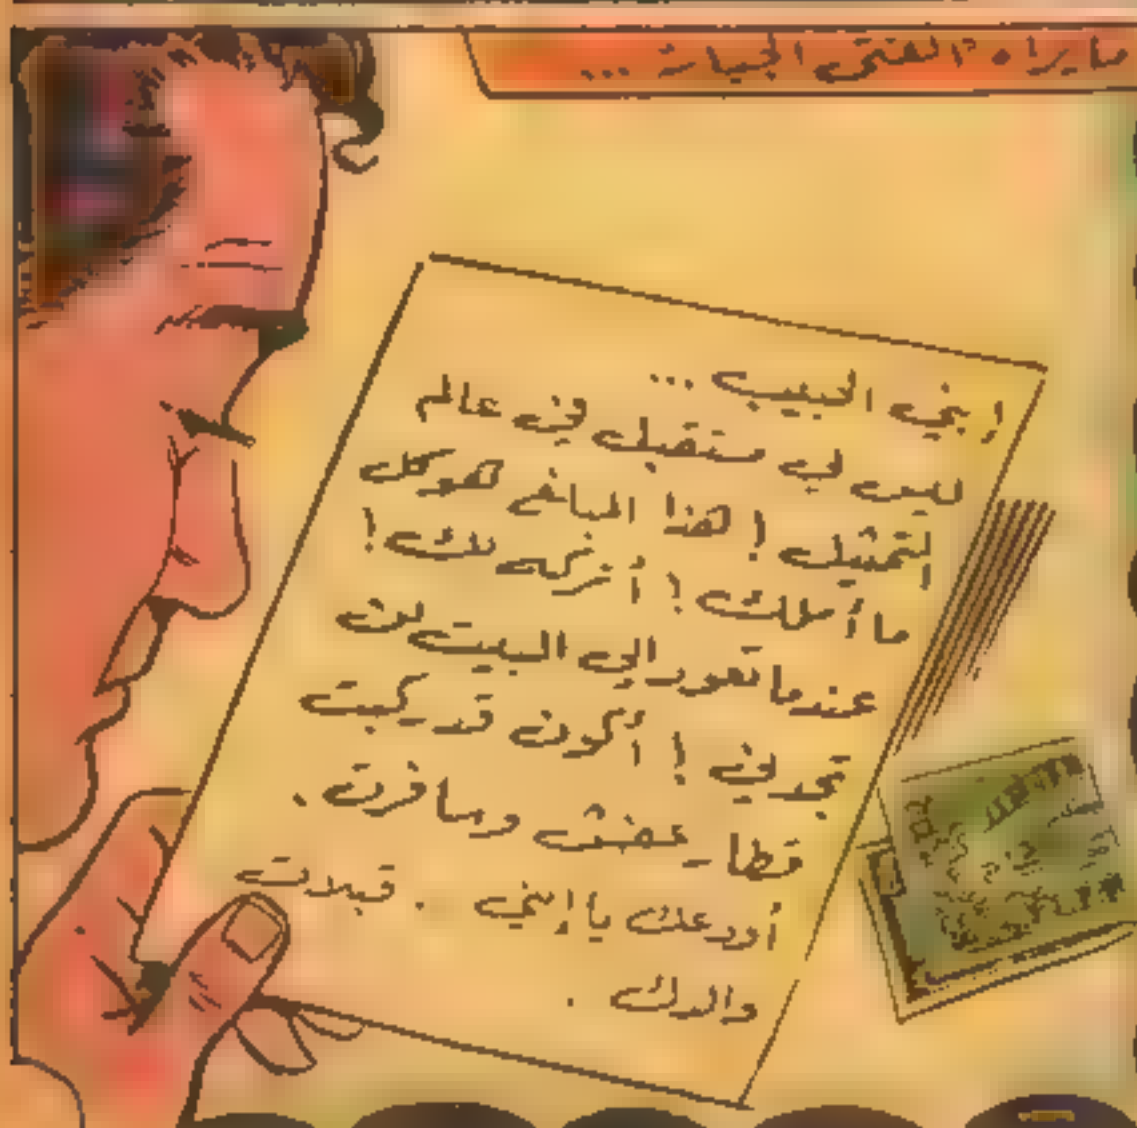 ما يراه الفتى الجبان ...
إبني الحبيب ...
ليس لي مستقبل في عالم
التمثيل ! هذا المبلغ هو كل
ما أملك ! أتركه لك !
عندما تعود إلى البيت لن
تجدني ! أكون قد ركبت
قطار وسافرت .
أودعك يا إبني . قبلات
والدك .